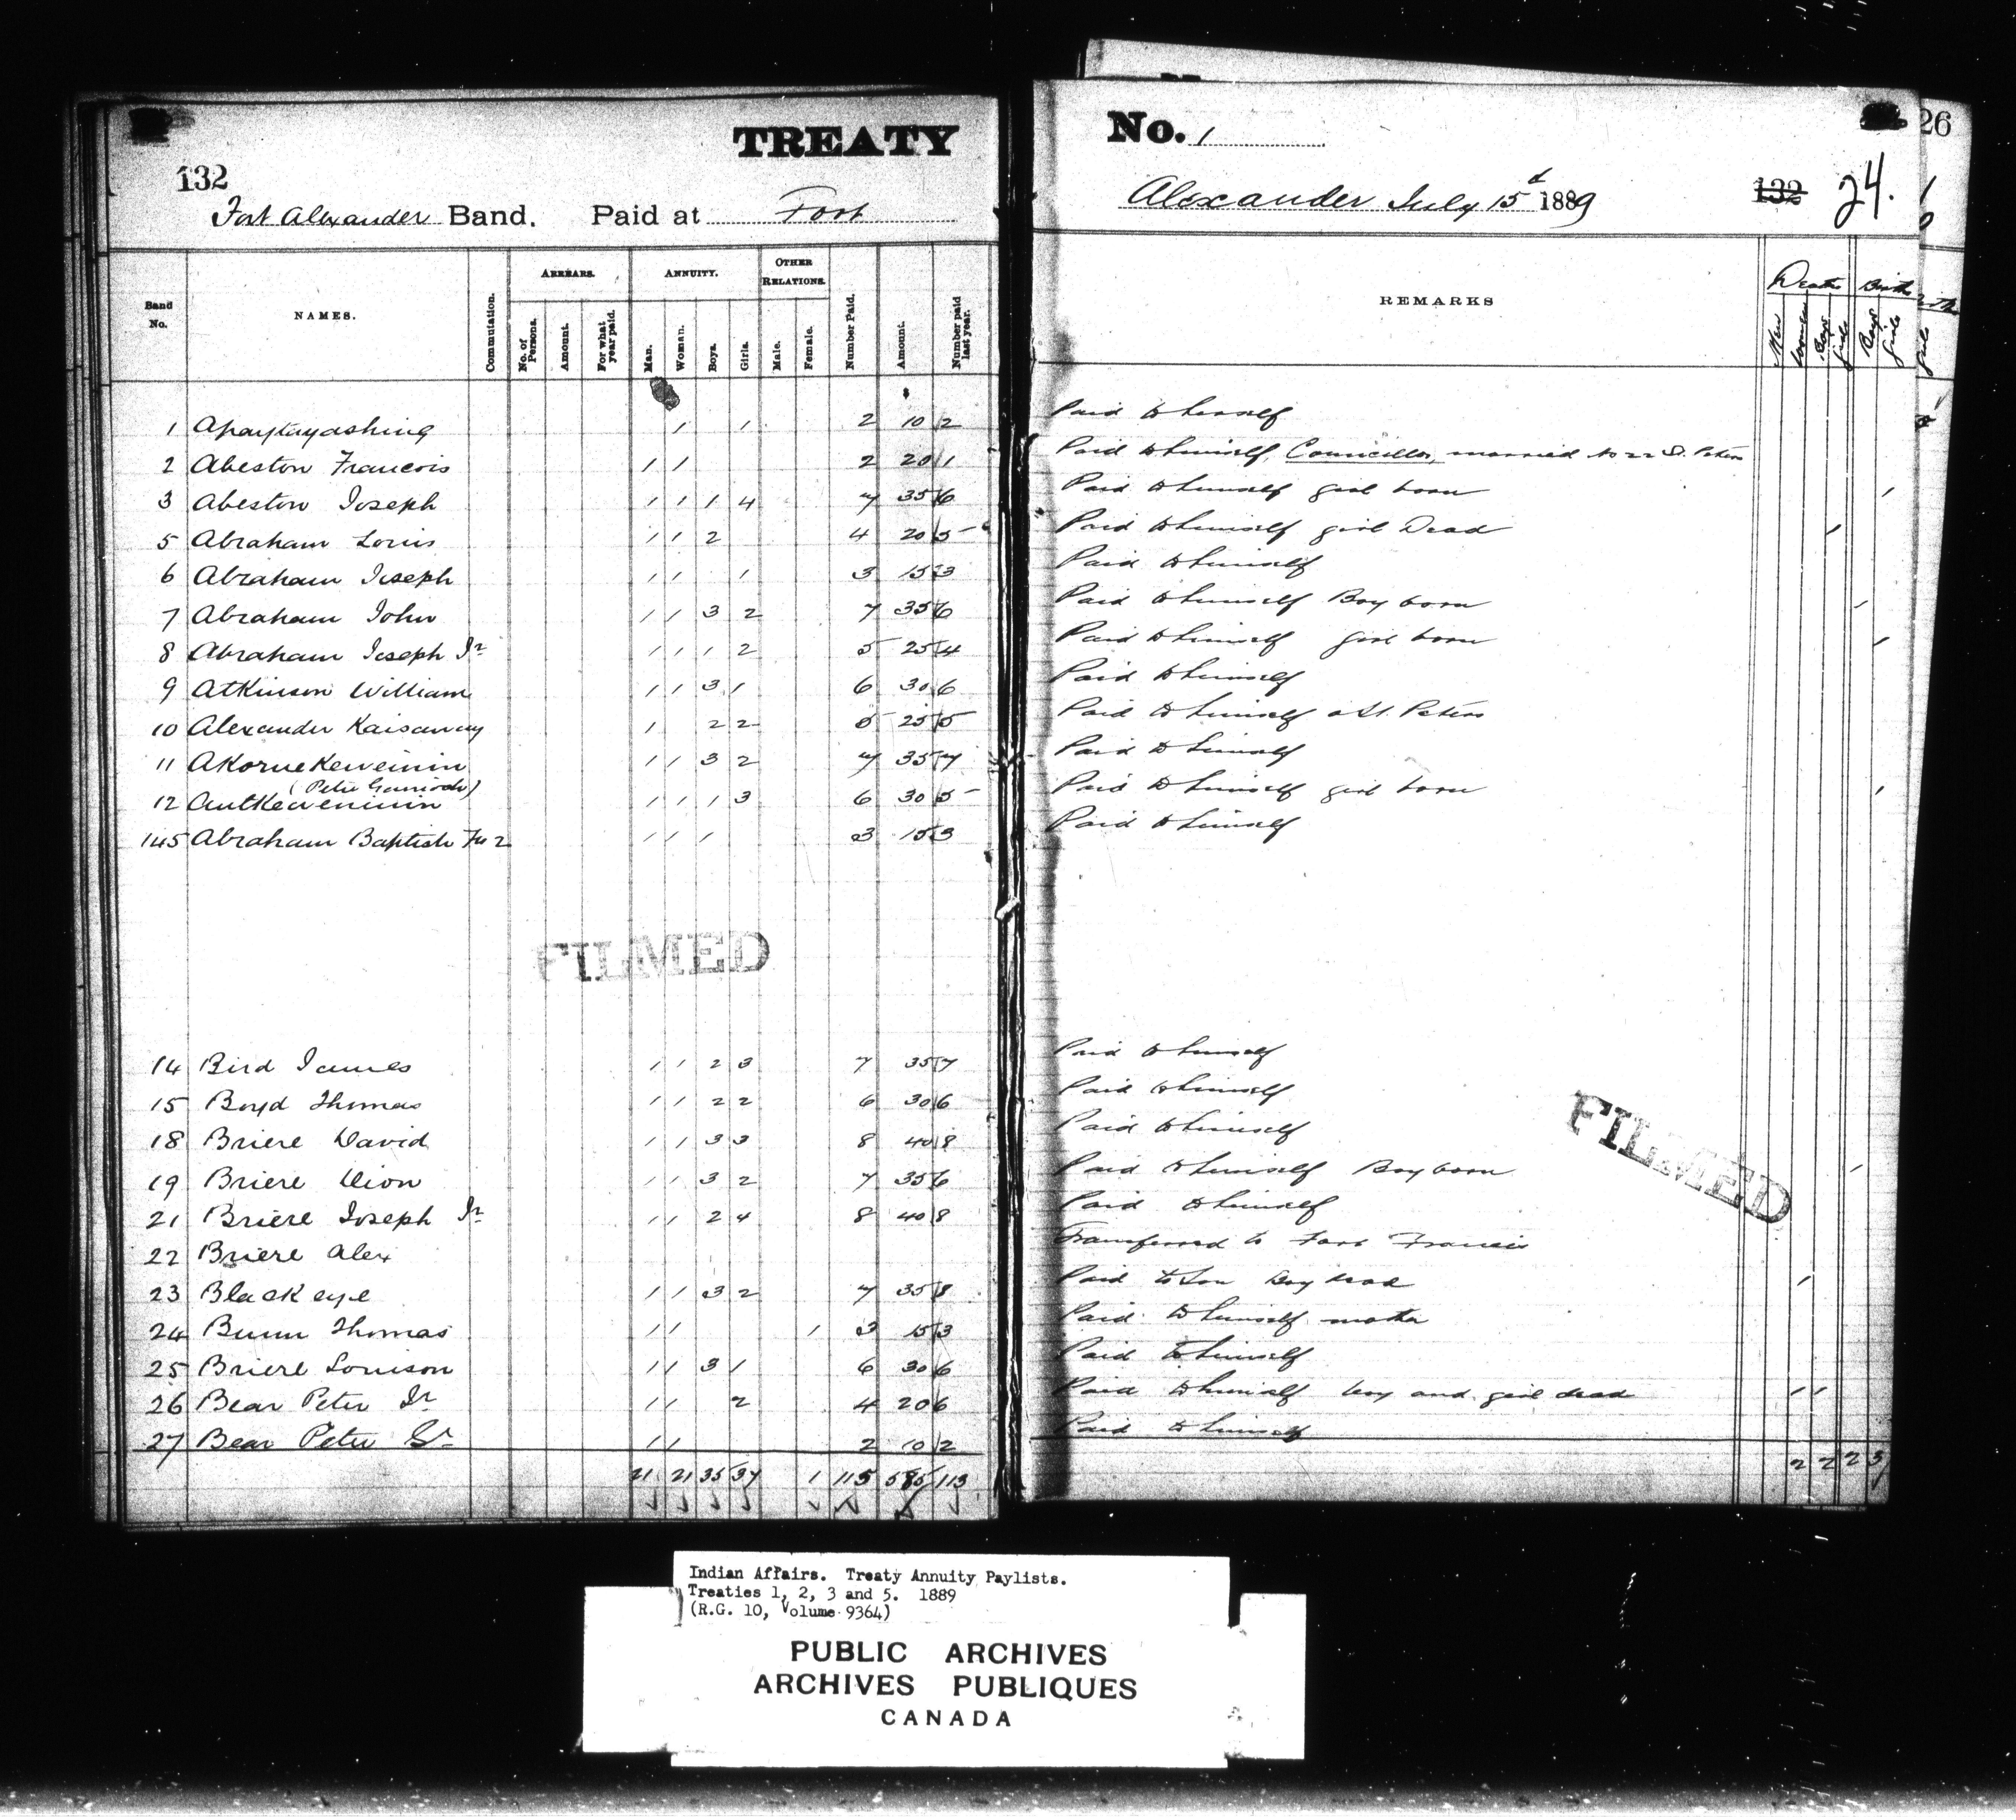 TREATY No. 1
132
26
Fort Alexander Band. Paid at Fort Alexander July 15th 1889 132 24.
Band No. NAMES. Commutation. ARREARS. No. of Persons. Amount. For what year paid. ANNUITY. Man. Woman. Boys. Girls. OTHER RELATIONS. Male. Female. Number Paid. Amount. Number paid last year. REMARKS Deaths Men Women Boys girls Births Boys girls
1 Apaytayashing 1 1 2 10 2 Paid to herself
2 Abeston Francois 1 1 2 20 1 Paid to himself, Councillor, married to 22 S. Peters
3 Abeston Joseph 1 1 1 4 7 35 6 Paid to himself girl born 1
5 Abraham Louis 1 1 2 4 20 5 Paid to himself girl Dead 1
6 Abraham Joseph 1 1 1 3 15 3 Paid to himself
7 Abraham John 1 1 3 2 7 35 6 Paid to himself Boy born 1
8 Abraham Joseph Jr 1 1 1 2 5 25 4 Paid to himself girl born 1
9 Atkinson William 1 1 3 1 6 30 6 Paid to himself
10 Alexander Kaisaway 1 2 2 5 25 5 Paid to himself a St. Peters
11 Akornekeweinin 1 1 3 2 7 35 7 Paid to himself
12 Autkeweninin 1 1 1 3 6 30 5 Paid to himself girl born 1
145 Abraham Baptiste No 2 1 1 1 3 15 3 Paid to himself
FILMED
14 Bird James 1 1 2 3 7 35 7 Paid to himself
15 Boyd Thomas 1 1 2 2 6 30 6 Paid to himself
18 Briere David 1 1 3 3 8 40 8 Paid to himself
19 Briere Dion 1 1 3 2 7 35 6 Paid to himself Boy born 1
21 Briere Joseph Jr 1 1 2 4 8 40 8 Paid to himself
22 Briere Alex Transferred to Fort Francis
23 Black eye 1 1 3 2 7 35 8 Paid to Son Boy dead 1
24 Bunn Thomas 1 1 1 3 15 3 Paid to himself mother
25 Briere Louison 1 1 3 1 6 30 6 Paid to himself
26 Bear Peter Jr 1 1 2 4 20 6 Paid to himself boy and girl dead 1 1
27 Bear Peter Sr 1 1 2 10 2 Paid to himself
21 21 35 37 1 115 585 113 2 2 2 5
FILMED
Indian Affairs. Treaty Annuity Paylists.
Treaties 1, 2, 3 and 5. 1889
(R.G. 10, Volume 9364)
PUBLIC ARCHIVES
ARCHIVES PUBLIQUES
CANADA